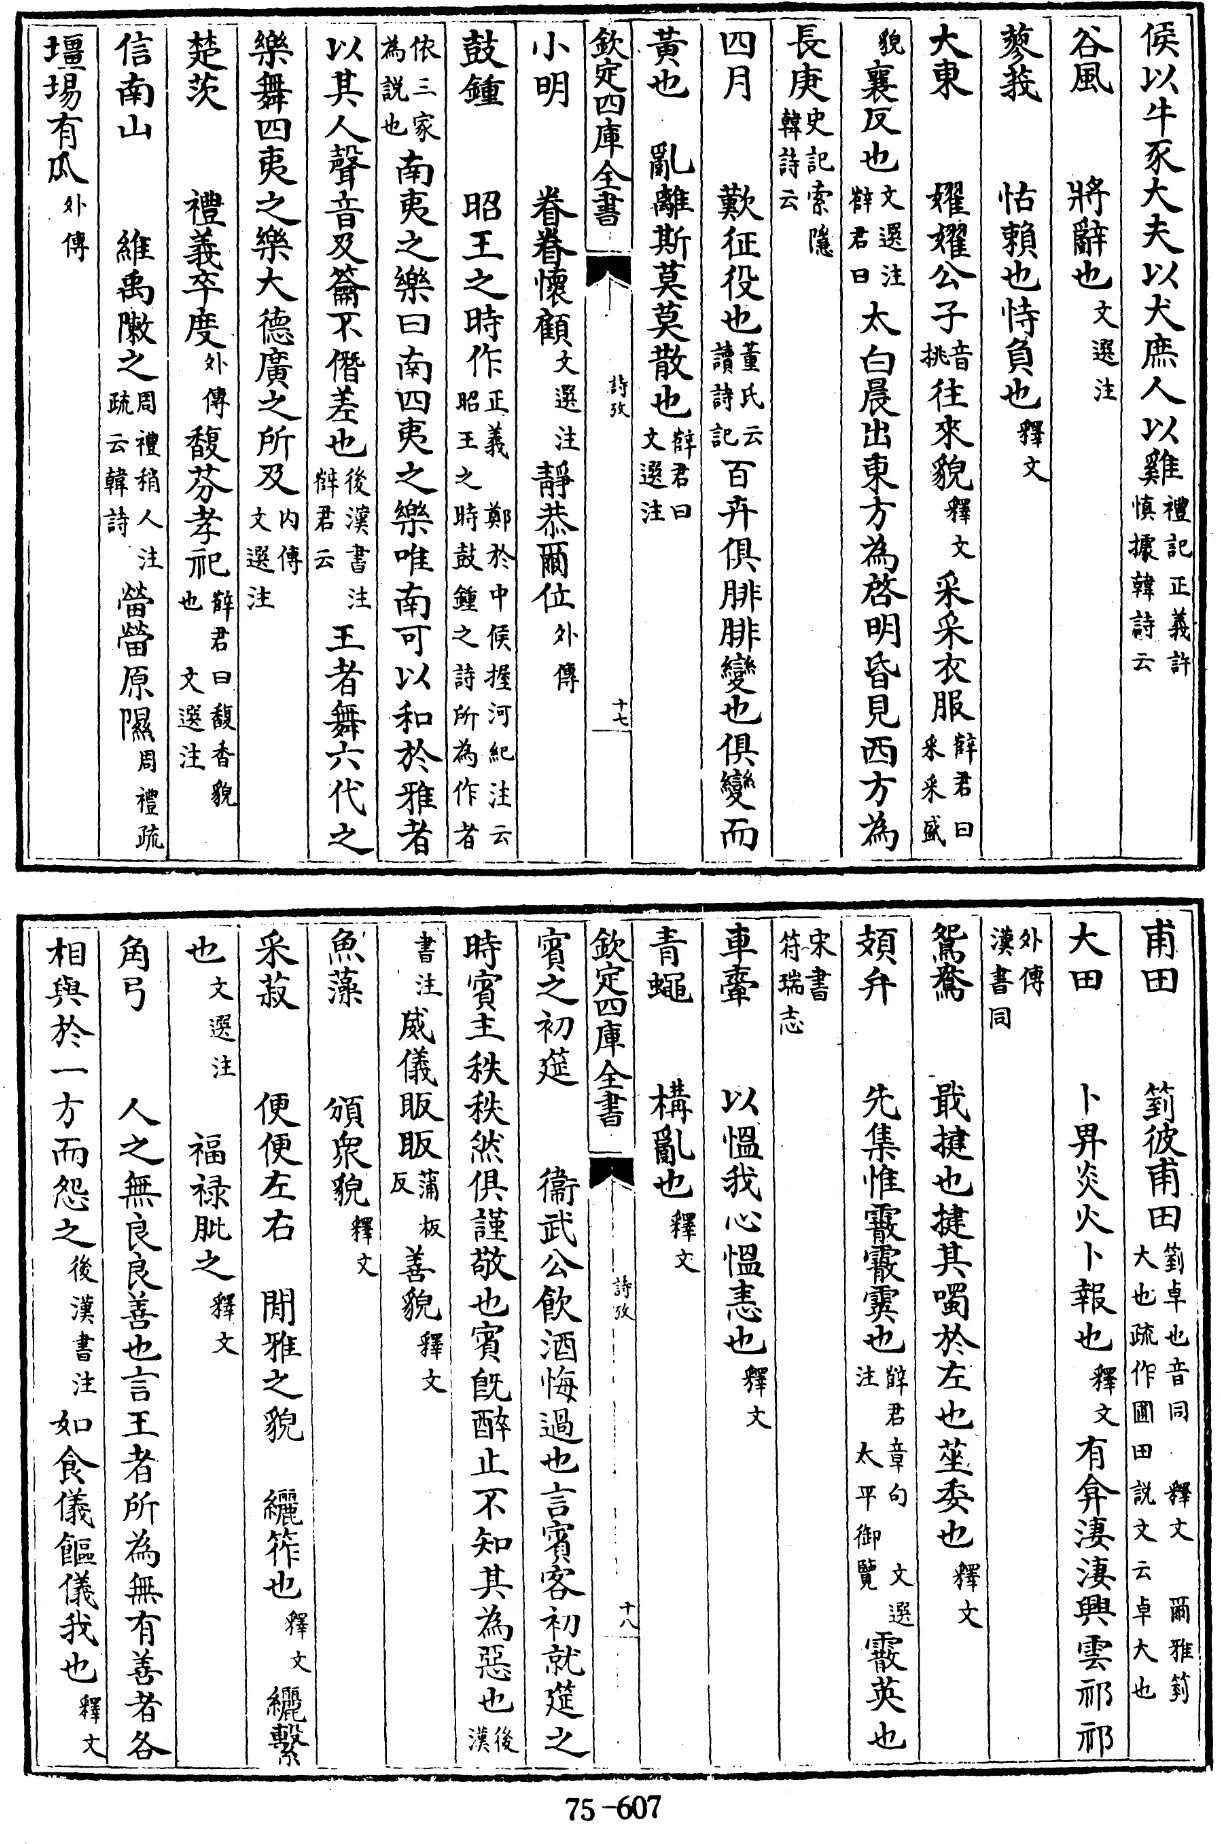 侯以牛豕大夫以犬庶人以雞禮記正義許慎據韓詩云
谷風　將辭也文選注
蓼莪　怙賴也恃負也釋文
大東　嬥嬥公子音挑往來貌釋文采采衣服薛君曰采采盛
貌襄反也文選注薛君曰太白晨出東方為啓明昏見西方為
長庚史記索隱韓詩云
四月　歎征役也董氏云讀詩記百卉俱腓腓變也俱變而
黃也　亂離斯莫莫散也薛君曰文選注
欽定四庫全書　詩攷　十七
小明　眷眷懷顧文選注靜恭爾位外傳
鼓鍾　昭王之時作正義　鄭於中候握河紀注云昭王之時鼓鍾之詩所為作者
依三家為說也南夷之樂曰南四夷之樂唯南可以和於雅者
以其人聲音及籥不僭差也後漢書注薛君云王者舞六代之
樂舞四夷之樂大德廣之所及內傳文選注
楚茨　禮義卒度外傳馥芬孝祀薛君曰馥香貌也　文選注
信南山　維禹敶之周禮稍人注疏云韓詩㽦㽦原隰周禮疏
壃場有瓜外傳
甫田　箌彼甫田箌卓也音同　釋文　爾雅箌大也疏作圃田說文云卓大也
大田　卜畀炎火卜報也釋文有弇淒淒興雲祁祁
外傳漢書同
鴛鴦　戢揵也揵其噣於左也莝委也釋文
頍弁　先集惟霰霰霙也薛君章句　文選注　太平御覽霰英也
宋書符瑞志
車舝　以愠我心愠恚也釋文
青蠅　構亂也釋文
欽定四庫全書　詩攷　十八
賓之初筵　衞武公飲酒悔過也言賓客初就筵之
時賓主秩秩然俱謹敬也賓旣醉止不知其為惡也後漢
書注威儀昄昄蒲板反善貌釋文
魚藻　頒衆貌釋文
采菽　便便左右　閒雅之貌　纚筰也釋文纚繫
也文選注　福祿肶之釋文
角弓　人之無良良善也言王者所為無有善者各
相與於一方而怨之後漢書注如食儀饇儀我也釋文
75-607